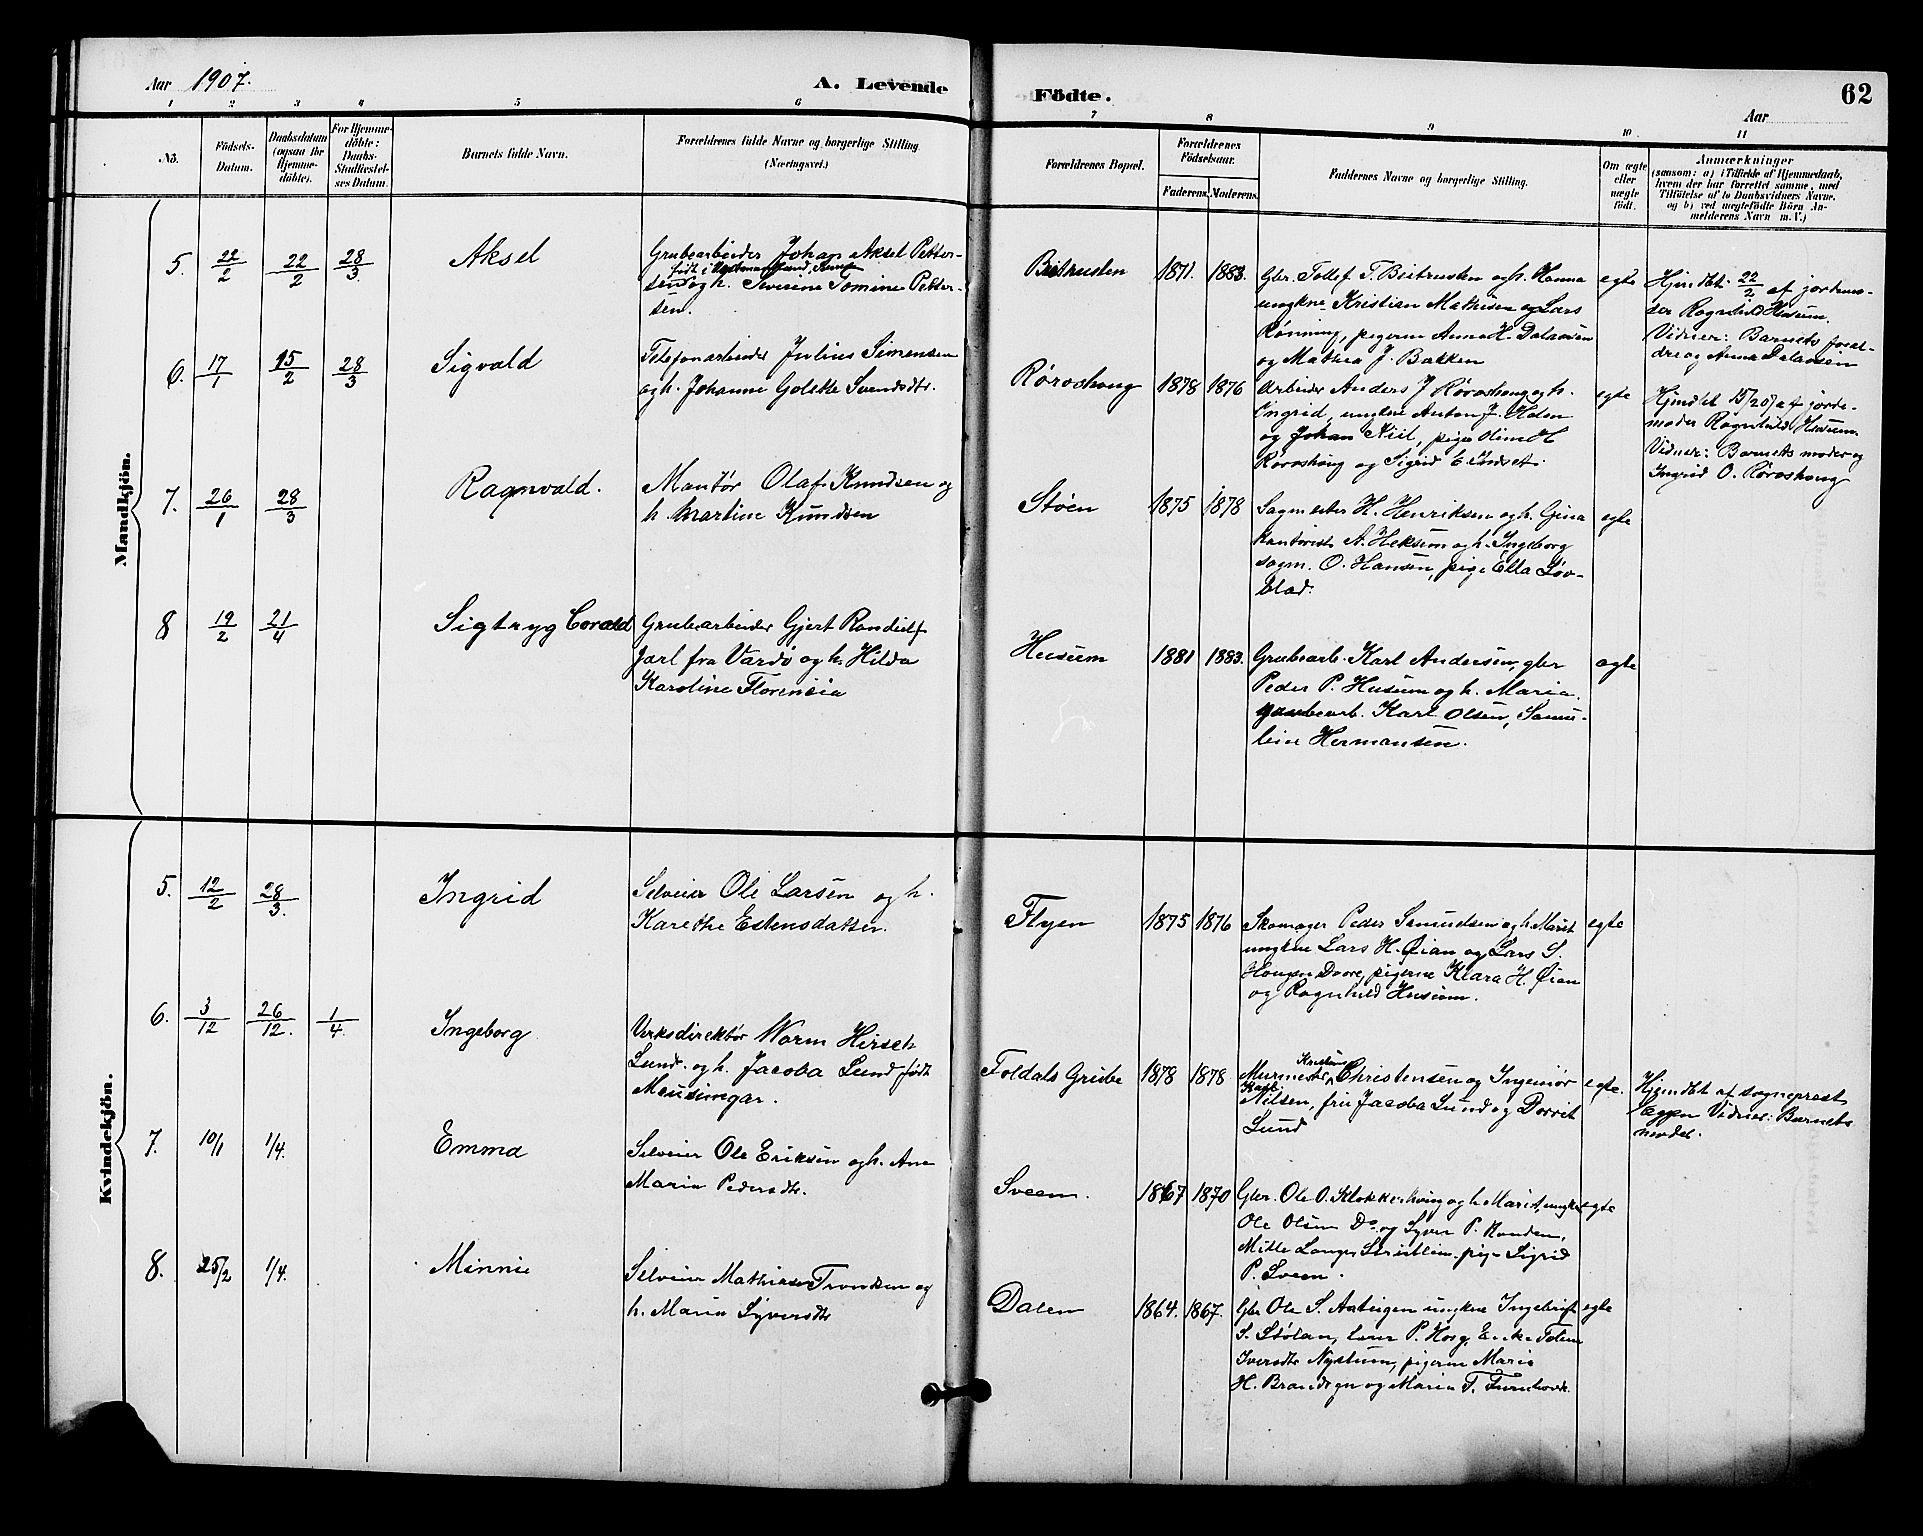 Aar 1907.
A. Levende
Födte.
62
Aar
1 2 3 4 5 6 7 8 9 10 11
No.
Födsels-
Datum.
Daabsdatum
(ogsaa for
Hjemme-
döbte).
For Hjemme-
döbte:
Daabs-
Stadfæstel-
ses Datum.
Barnets fulde Navn.
Forældrenes fulde Navne og borgerlige Stilling
(Næringsvei.)
Forældrenes Bopæl.
Forældrenes
Födselsaar.
Faderens. Moderens.
Faddernes Navne og borgerlige Stilling.
Om ægte
eller
uægte
födt.
Anmærkninger
(saasom: a) i Tilfælde af Hjemmedaab,
hvem der har forrettet samme, med
Tilföielse af to Daabsvidners Navne,
og b) ved uægtefödte Börn An-
melderens Navn m. V.)
Mandkjön.
5. 22/2 22/2 28/3
Aksel
Grubearbeider Johan Aksel Petter-
sen og h. Severine Tomine Petter-
sen.
1871. 1883.
ungkne Kristian Mathisen og Lars
Rønning, pigerne Anna H. Dalaasen
og Mathea J. Bakken
egte
Hjemdbt. 22/2 af jordemo-
der Ragnhild Husum.
Vidner: Barnets foræl-
dre og Anna Dalaasen
6. 17/1 15/2 28/3
Sigvald
Telefonarbeider Julius Simensen
og h. Johanne Golette Svendsdtr.
Røroshaug
1878 1876
Arbeider Anders J Røroshaug og h.
Ingrid, ungkne Anton J.
og Johan
Røroshaug og Sigrid
egte
Hjemdbt 15/2 07 af jorde-
moder Ragnhild Husum.
Vidner: Barnets moder og
Ingrid O. Røroshaug
7. 26/1 28/3
Ragnvald.
Montør Olaf Knudsen og
h. Martine Knudsen
Støen
1875 1878
Sagmester H. Henriksen og h. Gina
kontorist A. Heksum og h. Ingeborg
sagm. O. Hansen, pige Ella Løv-
blad.
egte
8 19/2 21/4
Sigtryg Corald
Grubearbeider Gjert Rondiolf
Jarl fra Vardø og h. Hilda
Karoline Florensia
Husum
1881 1883.
Grubearb. Karl Andersen, gbr
Peder P. Husum og h. Maria.
grubearb. Karl Olsen, Samu-
line Hermansen.
egte
Kvindekjön.
5. 12/2 28/3.
Ingrid
Selveier Ole Larsen og h.
Karethe Estensdatter.
Flyen
1875 1876
Skomager Peder Samuelsen og h. Marit
ungkne Lars H. Øian og Lars S.
Haugen Dovre, pigerne Klara H. Øian
og Ragnhild Husum.
egte
6. 3/12 26/12. 1/4.
Ingeborg
Verksdirektør Worm Hirsch
Lund og h. Jacoba Lund født
Foldals Grube
1878 1878
Murmester Christensen og Ingeniør
Nilsen, fru Jacoba Lund og Dorrit
Lund
egte.
Hjemdbt af sogneprest
Vidner: Barnets
moder.
7. 10/1 1/4.
Emma
Selveier Ole Eriksen og h. Ane
Maria Pedersdtr.
Sveen.
1867 1870
Gbr. Ole O. Klokkerhaug og h. Marit, ungkne
Ole Olsen Do og Syver P. Randen,
pige Sigrid
P. Sveen.
egte
8. 25/2 1/4.
Minnie
Selveier Mathias Trondsen og
h. Maria Syversdtr
Dalen
1864. 1867.
Gbr Ole S. Aateigen ungkne Ingebrigt
S. Stølan,
Iversdtr Nystuen, pigerne Marie
H. Brandsen og Maria T.
egte